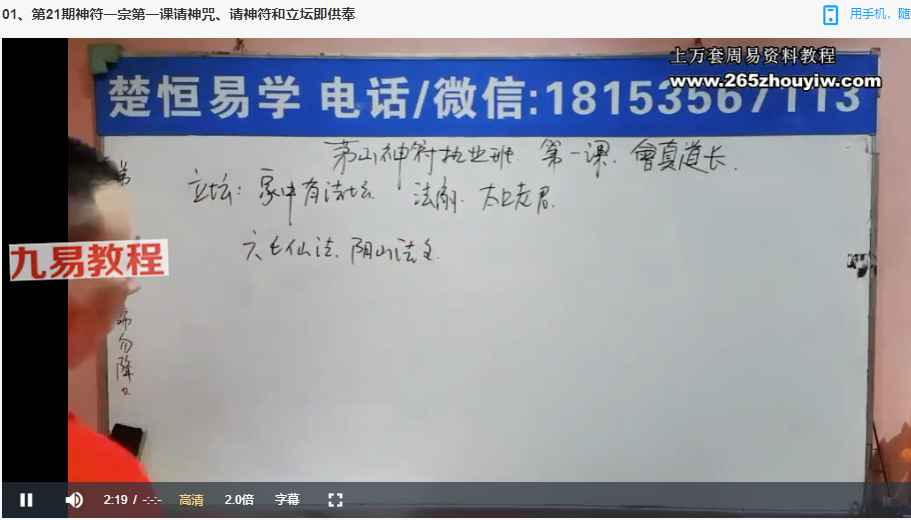 01、第21期神符一宗第一课请神咒、请神符和立坛即供奉
用手机，随
上万套周易资料教程
www.265zhouyiw.com
楚恒易学 电话/微信:18153567113
茅山神符执业班 第一课 曾真道长
立坛：家中有法坛 法扇 太上老君
六壬仙法、阴山法文
第
九易教程
勿降
2:19 / -:-:-
高清
2.0倍
字幕